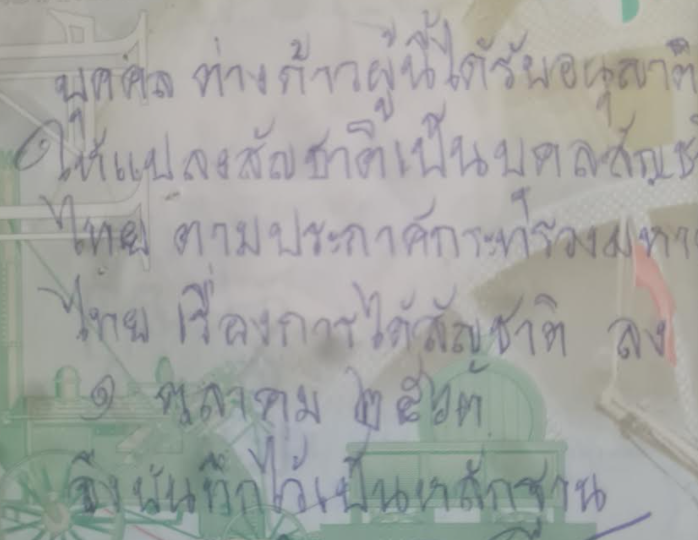 บุคคล ต่างด้าวผู้นี้ได้รับอนุญาติ
ให้แปลงสัญชาติเป็นบุคลสัญช
ไทย ตามประกาศกระทรวงมหา
ไทย เรื่องการได้สัญชาติ ลง
๑ ตุลาคม
จึงบันทึกไว้เป็นหลักฐาน